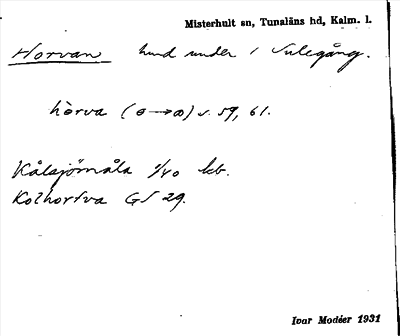 Misterhult sn, Tunaläns hd, Kalm. l.
Horvan hmd under 1 Sulegång.
hòrva (ɵ→ɷ) s. 59, 61.
Kålsjömåla 1/40 kb.
Kolhorfva GS 29.
Ivar Modéer 1931